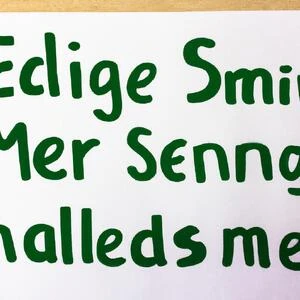 Eclige Smir
Mer Senng
nalleds me